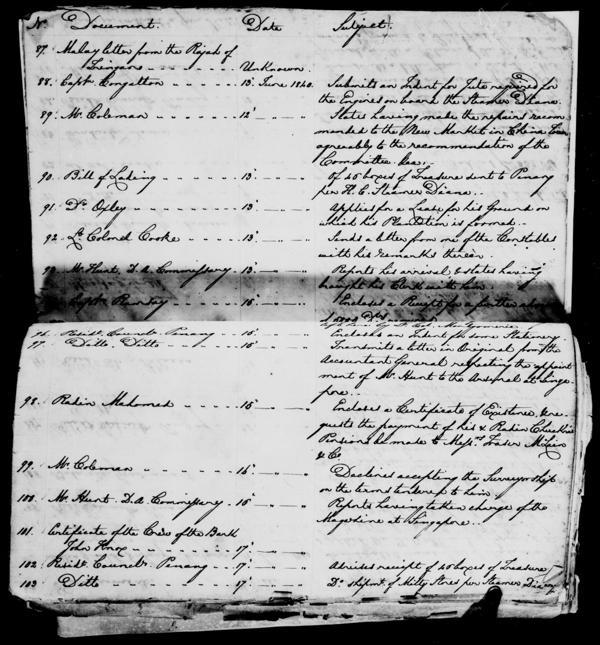 No. Document. Date Subject.
87. Malay letter from the Rajah of
Tringanu - - - - - - Unknown.
88. Capt. Congalton - - - - 13 June 1840. Submits an Indent for Jute required for
the Engines on board the Steamer Diana.
89. Mr. Coleman - - - - - 12 " States having made the repairs recom
mended to the New Market in
agreeably to the recommendation of the
Committee &ca.
90. Bill of Lading - - - - 13 " Of 20 boxes of Treasure sent to Penang
per H. C. Steamer Diana.
91. Dr. Oxley - - - - - 13 " Applies for a Lease for his Ground on
which his Plantation is formed.
92. Lt. Colonel Cooke - - - 13 " Sends a letter from one of the Constables
with his remarks thereon.
93. Mr. Hunt, D. A. Commissary - 13 " Reports his arrival & states having
brought his Clerk with him.
Capt. - - - - 15 " Encloses a Receipt for a further
96. Residt. Councilr. Penang - - 15 " Encloses an Indent for some Stationery.
97. Ditto Ditto - - - - 15 " Transmits a letter in Original from the
Accountant General respecting the appoint
ment of Mr. Hunt to the Arsenal at Singa
pore.
98. Radin Mahomed - - - - 15 " Encloses a Certificate of Existence, & re-
quests the payment of his & Radin
Pensions be made to Messrs. Fraser
& Co.
99. Mr. Coleman - - - - 16 " Declines accepting the Surveyorship
on the terms tendered to him.
100. Mr. Hunt. D. A. Commissary - 16 " Reports having taken charge of the
Magazine at Singapore.
101. Certificate of the of the Bark
John Knox - - - - 17 "
102. Residt. Councilr. Penang - - 17 " Advises receipt of 20 boxes of Treasure
103 Ditto - - - - 17 " Do. shipmt. of Milty Stores per Steamer Diana